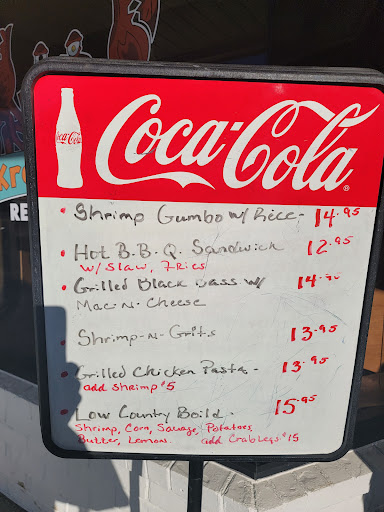 Coca-Cola
Coca-Cola
• Shrimp Gumbo w/ Rice - 14.95
• Hot B.B.Q. Sandwich 12.95
w/ Slaw, Fries
• Grilled Black Bass w/ 14.95
Mac-N-Cheese
• Shrimp-N-Grits 13.95
• Grilled Chicken Pasta - 13.95
add Shrimp $5
• Low Country Boild - 15.95
Shrimp, Corn, Sausage, Potatoes
Butter, Lemon. add Crab Legs $15